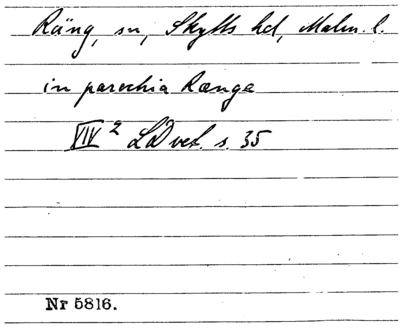 Räng, sn, Skytts hd, Malm. l.
in parochia Rænge
XIV 2 LD vet. s. 35
Nr 5816.